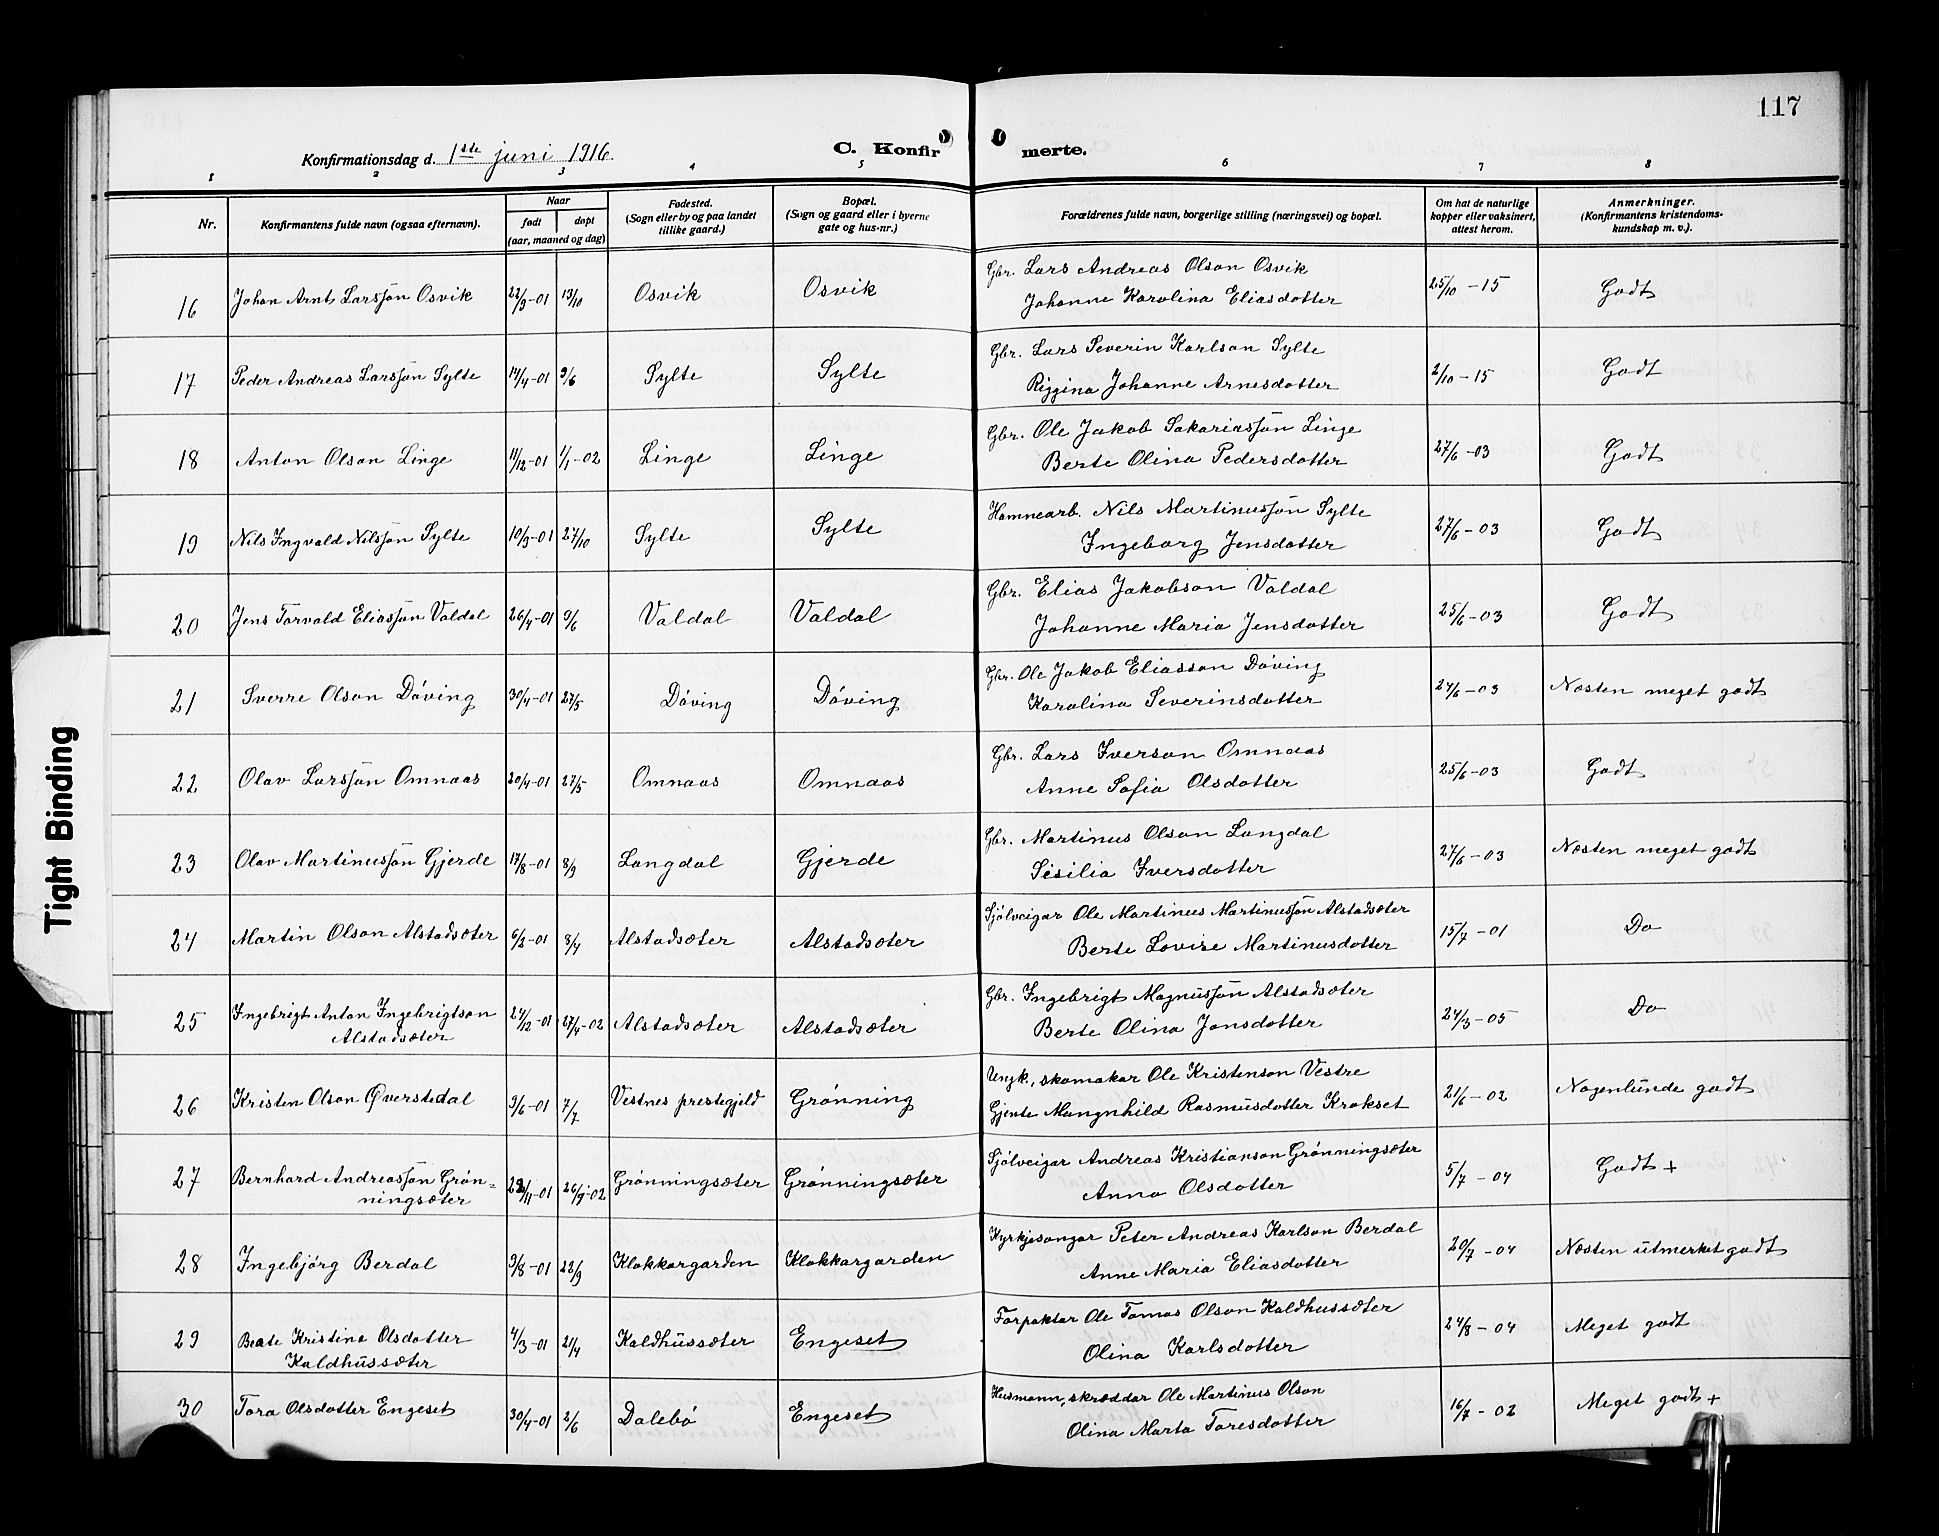 117
Konfirmationsdag d. 1ste juni 1916
C. Konfirmerte.
1 2 3 4 5 6 7 8
Nr.
Konfirmantens fulde navn (ogsaa efternavn).
Naar
født
døpt
(aar, maaned og dag)
Fødested.
(Sogn eller by og paa landet
tillike gaard.)
Bopæl.
(Sogn og gaard eller i byerne
gate og hus-nr.)
Forældrenes fulde navn, borgerlige stilling (næringsvei) og bopæl.
Om hat de naturlige
kopper eller vaksinert,
attest herom.
Anmerkninger.
(Konfirmantens kristendoms-
kundskap m. v.).
16 Johan Arnt Larssøn Osvik 22/9-01 13/10 Osvik Osvik Gbr. Lars Andreas Olson Osvik 25/10-15 Godt
Johanne Karolina Eliasdotter
17 Peder Andreas Larssøn Sylte 14/4-01 9/6 Sylte Sylte Gbr. Lars Severin Karlson Sylte 2/10-15 Godt
Riggina Johanne Arnesdotter
18 Anton Olson Linge 11/12-01 1/1-02 Linge Linge Gbr. Ole Jakob Sakariassøn Linge 27/6-03 Godt
Berte Olina Pedersdotter
19 Nils Ingvald Nilssøn Sylte 10/9-01 27/10 Sylte Sylte Hamnearb. Nils Martinussøn Sylte 27/6-03 Godt
Ingeborg Jensdotter
20 Jens Torvald Eliassøn Valdal 26/4-01 9/6 Valdal Valdal Gbr. Elias Jakobson Valdal 25/6-03 Godt
Johanne Maria Jensdotter
21 Sverre Olson Døving 30/4-01 27/5 Døving Døving Gbr. Ole Jakob Eliasson Døving 24/6-03 Næsten meget godt
Karolina Severinsdotter
22 Olav Larssøn Omnaas 20/4-01 27/5 Omnaas Omnaas Gbr. Lars Iverson Omnaas 25/6-03 Godt
Anne Sofia Olsdotter
23 Olav Martinussøn Gjerde 17/8-01 8/9 Langdal Gjerde Gbr. Martinus Olson Langdal 27/6-03 Næsten meget godt
Sisilia Iversdotter
24 Martin Olson Alstadsæter 6/2-01 8/4 Alstadsæter Alstadsæter Sjølveigar Ole Martinus Martinussøn Alstadsæter 15/7-01 Do
Berte Lovise Martinusdotter
25 Ingebrigt Anton Ingebrigtson 24/12-01 27/4-02 Alstadsæter Alstadsæter Gbr. Ingebrigt Magnussøn Alstadsæter 24/3-05 Do
Alstadsæter Berte Olina Jonsdotter
26 Kristen Olson Øverstedal 9/6-01 7/7 Vestnes prestegjeld Grønning Ungk., skomakar Ole Kristenson Vestre 21/6-02 Nogenlunde godt
Gjente Mangnhild Rasmusdotter Krokset
27 Bernhard Andreassøn Grøn= /11-01 26/9-02 Grønningsæter Grønningsæter Sjølveigar Andreas Kristianson Grønningsæter 5/7-04 Godt +
ningsæter Anna Olsdotter
28 Ingebjørg Berdal 9/8-01 22/9 Klokkargarden Klokkargarden Kyrkjesongar Peter Andreas Karlson Berdal 20/7-04 Næsten utmerket godt
Anne Maria Eliasdotter
29 Beate Kristine Olsdotter 4/3-01 21/4 Kaldhussæter Engeset Forpaktar Ole Tomas Olson Kaldhussæter 24/8-04 Meget godt
Kaldhussæter Olina Karlsdotter
30 Tora Olsdotter Engeset 30/4-01 2/6 Dalebø Engeset Husmann, skræddar Ole Martinus Olson 16/7-02 Meget godt +
Olina Marta Toresdotter
Tight Binding